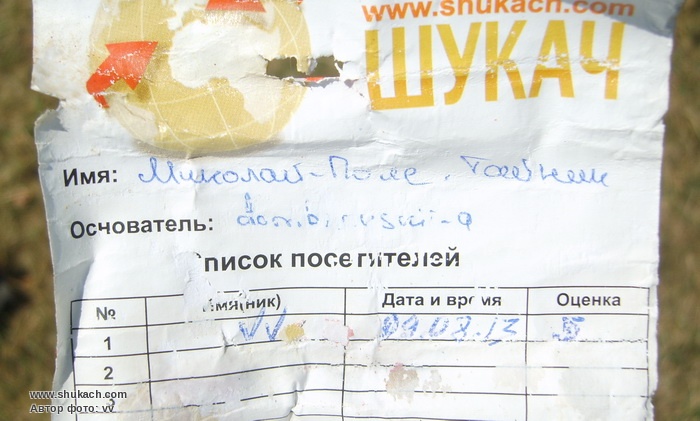 www.shukach.com
ШУКАЧ
Имя: Миколай-Поле. Тайник
Основатель:
Список посетителей
№ Имя(ник) Дата и время Оценка
1 VV 09.08.13
2
3
www.shukach.com
Автор фото: vv